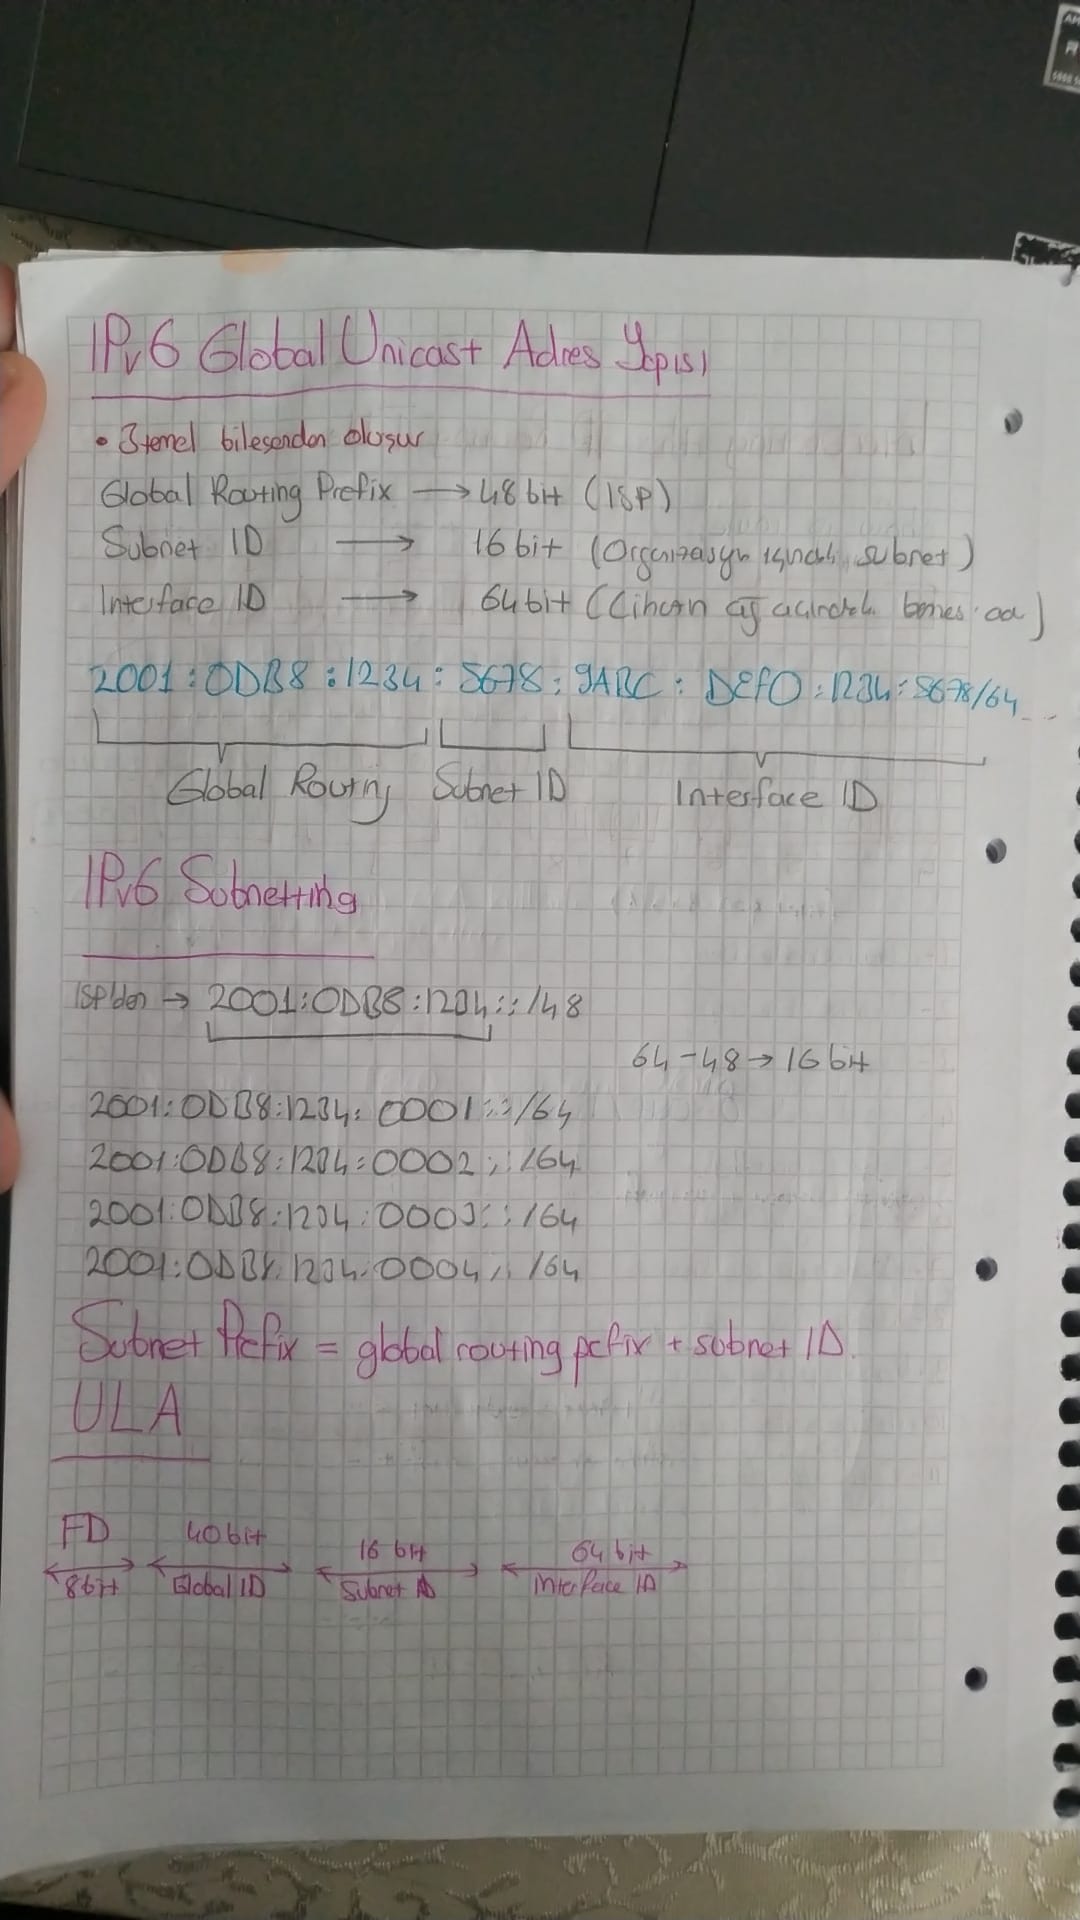 IPv6 Global Unicast Adres Yapısı
• 3 temel bileşenden oluşur
Global Routing Prefix → 48 bit (ISP)
Subnet ID → 16 bit (Organizasyn içindeki subnet)
Interface ID → 64 bit (Cihazın ağ
2001:0DB8:1234:5678:9ABC:DEF0:1234:5678/64
Global Routing Subnet ID Interface ID
IPv6 Subnetting
ISP'den → 2001:0DB8:1234::/48
64-48→16 bit
2001:0DB8:1234:0001::/64
2001:0DB8:1234:0002::/64
2001:0DB8:1234:0003::/64
2001:0DB8:1234:0004::/64
Subnet Prefix = global routing prefix + subnet ID.
ULA
FD 40 bit 16 bit 64 bit
8 bit Global ID Subnet ID Interface ID